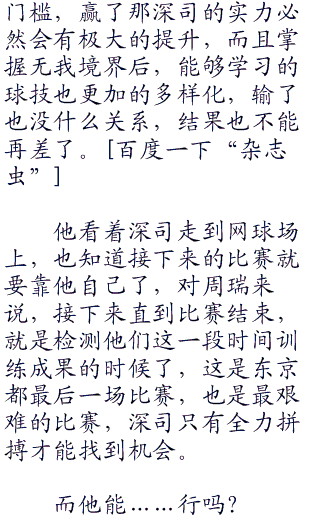 门槛，赢了那深司的实力必
然会有极大的提升，而且掌
握无我境界后，能够学习的
球技也更加的多样化，输了
也没什么关系，结果也不能
再差了。[百度一下“杂志
虫”]
他看着深司走到网球场
上，也知道接下来的比赛就
要靠他自己了，对周瑞来
说，接下来直到比赛结束，
就是检测他们这一段时间训
练成果的时候了，这是东京
都最后一场比赛，也是最艰
难的比赛，深司只有全力拼
搏才能找到机会。
而他能……行吗？